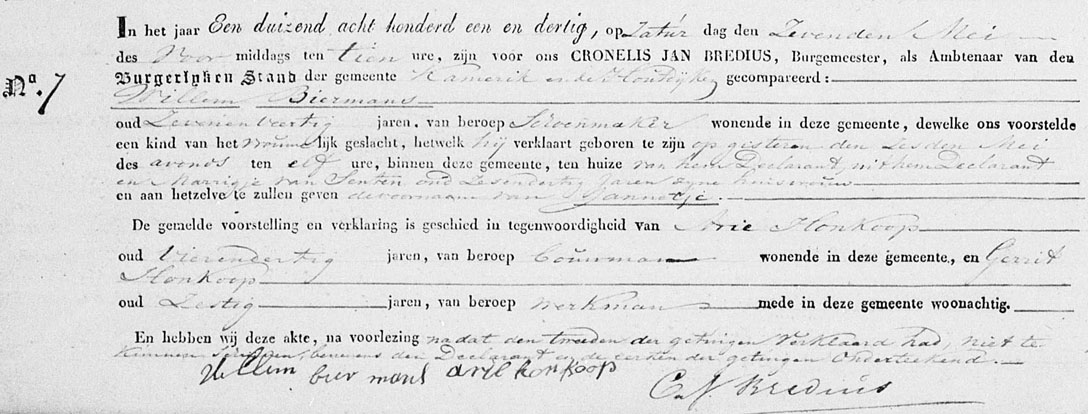 In het jaar Een duizend acht honderd een en dertig, op Zatur dag den Zevenden Mei
des Voor middags ten tien ure, zijn voor ons CRONELIS JAN BREDIUS, Burgemeester, als Ambtenaar van den
No. 7
Burgerlyken Stand der gemeente Kamerik en de Houtdyken gecompareerd:
Willem Biermans
oud Zevenenveertig jaren, van beroep Schoenmaker wonende in deze gemeente, dewelke ons voorstelde
een kind van het vrouwelijk geslacht, hetwelk hij verklaart geboren te zijn op gisteren den Zesden Mei
des avonds ten elf ure, binnen deze gemeente, ten huize van hem Declarant, uit hem Declarant
en Marrigje van Senten oud Zesendertig Jaren zyne huisvrouw
en aan hetzelve te zullen geven de voornaam van Jannetje.
De gemelde voorstelling en verklaring is geschied in tegenwoordigheid van Arie Honkoop
oud Vierendertig jaren, van beroep Bouwman wonende in deze gemeente, en Gerrit
Honkoop
oud Zestig jaren, van beroep werkman mede in deze gemeente woonachtig.
En hebben wij deze akte, na voorlezing nadat den tweeden der getuigen Verklaard had, niet te
kunnen schryven, benevens den Declarant en de eersten der getuigen Onderteekend.
Willem bier mans arie honkoop
C. J. Bredius